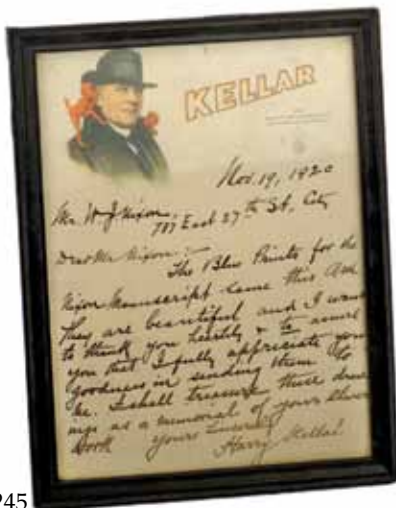 KELLAR
Nov. 19, 1920
Mr. W. J. Nixon,
East 27th St, City
Dear Mr. Nixon:-
The Blue Prints for the
Nixon Manuscript came this AM
They are beautiful and I want
to thank you heartily & to assure
you that I fully appreciate your
goodness in sending them to
me. I shall treasure these draw
ings as a memorial of your clever
work yours sincerely
Harry Kellar
245